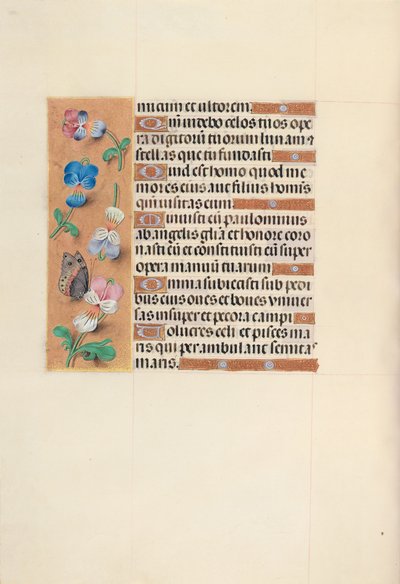 micum et ultorem.
Qm̄ videbo celos tuos ope
ra digitorū tuorum lunam ⁊
stellas que tu fundasti
Quid est homo quod me
mores eius aut filius homīs
qm̄ uisitas eum.
Minuisti eū paulominus
ab angelis gl̄ia et honore coro
nasti eū et constituisti eū super
opera manuū tuarum
Omnia subiecisti sub pedi
bus eius oues et boues vniuer
sas insuper et pecora campi
Volucres celi et pisces ma
ris qui perambulant semitas
maris.